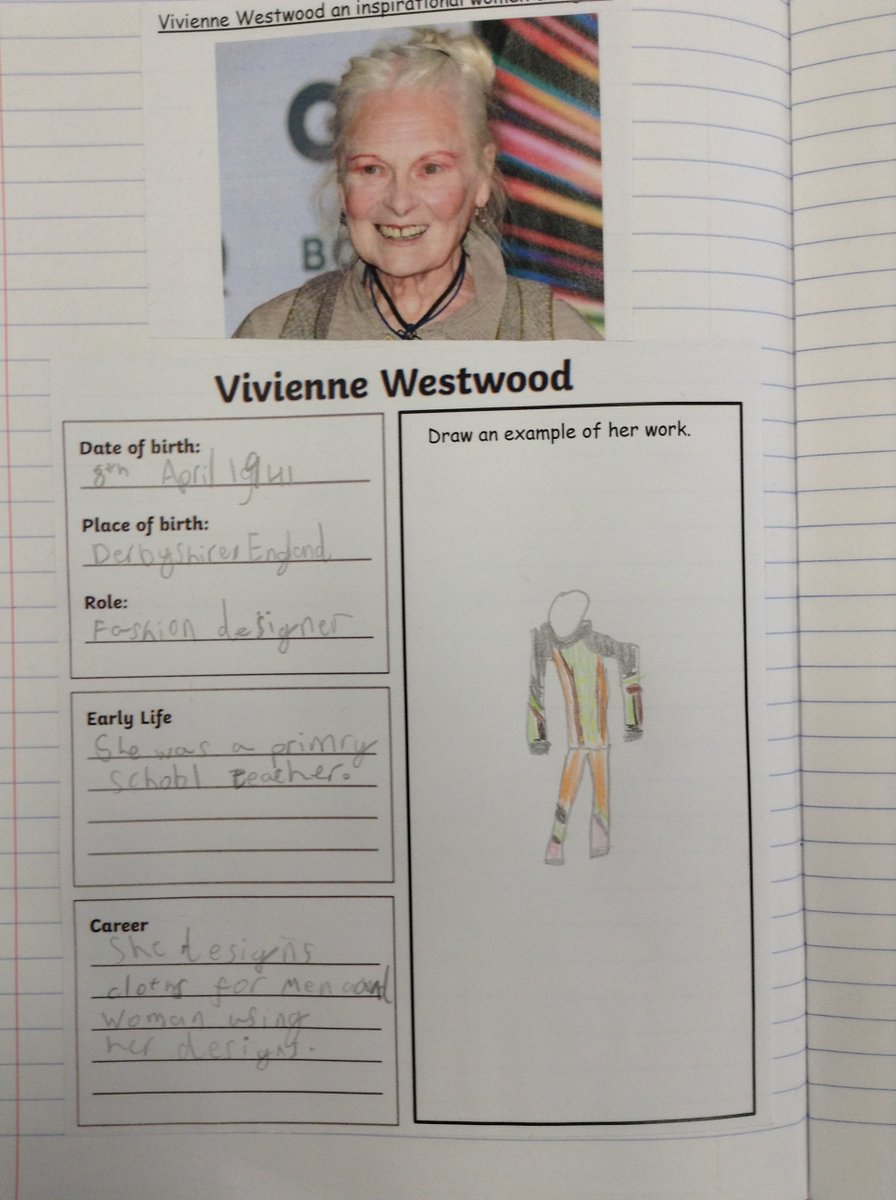 Vivienne Westwood an inspirational women
G
BO
Vivienne Westwood
Date of birth:
8th April 1941
Place of birth:
Derbyshire, England
Role:
Fashion designer
Early Life
She was a primry
school teacher.
Career
She designs
cloths for men and
woman using
her designs.
Draw an example of her work.